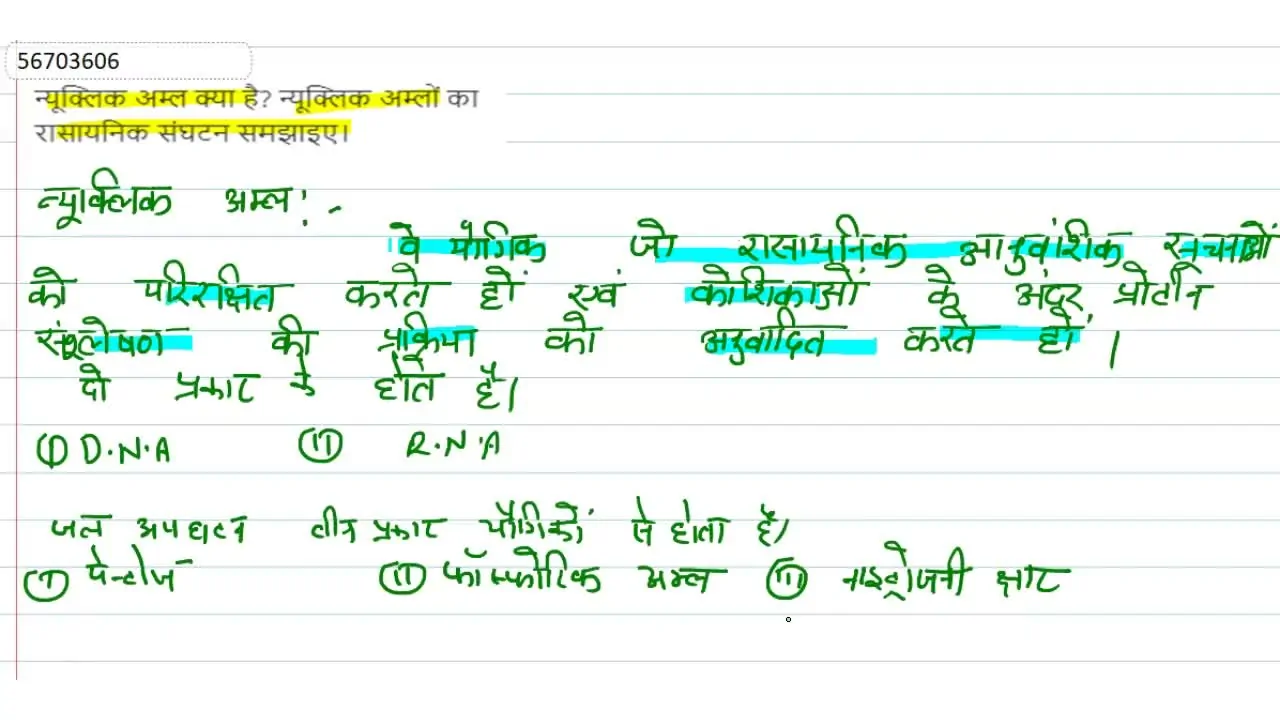 56703606
न्यूक्लिक अम्ल क्या है? न्यूक्लिक अम्लों का
रासायनिक संघटन समझाइए।
न्यूक्लिक अम्ल :-
वे यौगिक जो रासायनिक आनुवंशिक सूचनाओं
को परिरक्षित करते हों एवं कोशिकाओं के अंदर प्रोटीन
संश्लेषण की प्रक्रिया को अनुवादित करते हों ।
दो प्रकार के होते है।
(i) D.N.A (ii) R.N.A
जल अपघटन तीन प्रकार यौगिकों से होता है।
(i) पेन्टोज (ii) फॉस्फोरिक अम्ल (iii) नाइट्रोजनी क्षार